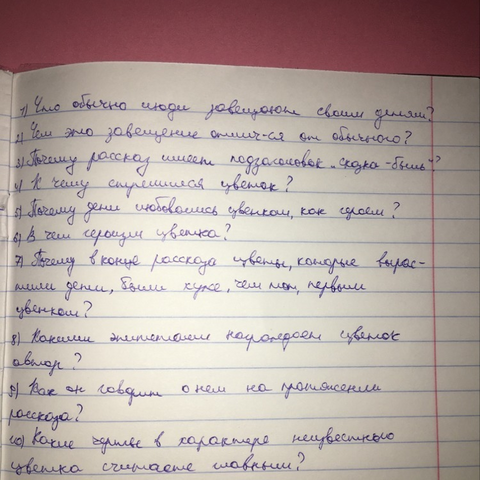 1) Что обычно люди завещают своим детям?
2) Чем это завещание отлич-ся от обычного?
3) Почему рассказ имеет подзаголовок „сказка-быль"?
4) К чему стремился цветок?
5) Почему дети любовались цветком, как героем?
6) В чем героизм цветка?
7) Почему в конце рассказа цветы, которые вырас-
тили дети, были хуже, чем тот, первый
цветком?
8) Какими эпитетами награждает цветок
автор?
9) Как он говорит о нем на протяжении
рассказа?
10) Какие черты в характере неизвестного
цветка считаете главными?